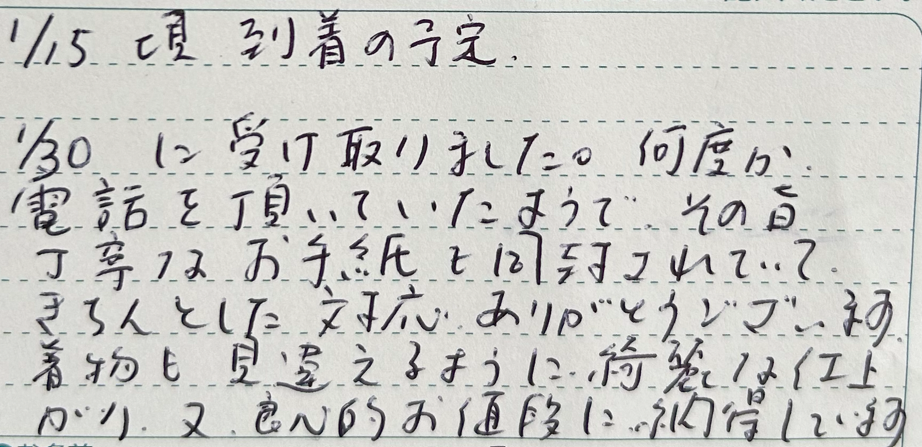 1/15 頃 到着の予定.
1/30 に受け取りました。何度か.
電話を頂いていたようで. その旨
丁寧なお手紙も同封されていて.
きちんとした対応. ありがとうございます.
着物も見違えるように. 綺麗な仕上
がり. 又. 良心的お値段に. 納得しています